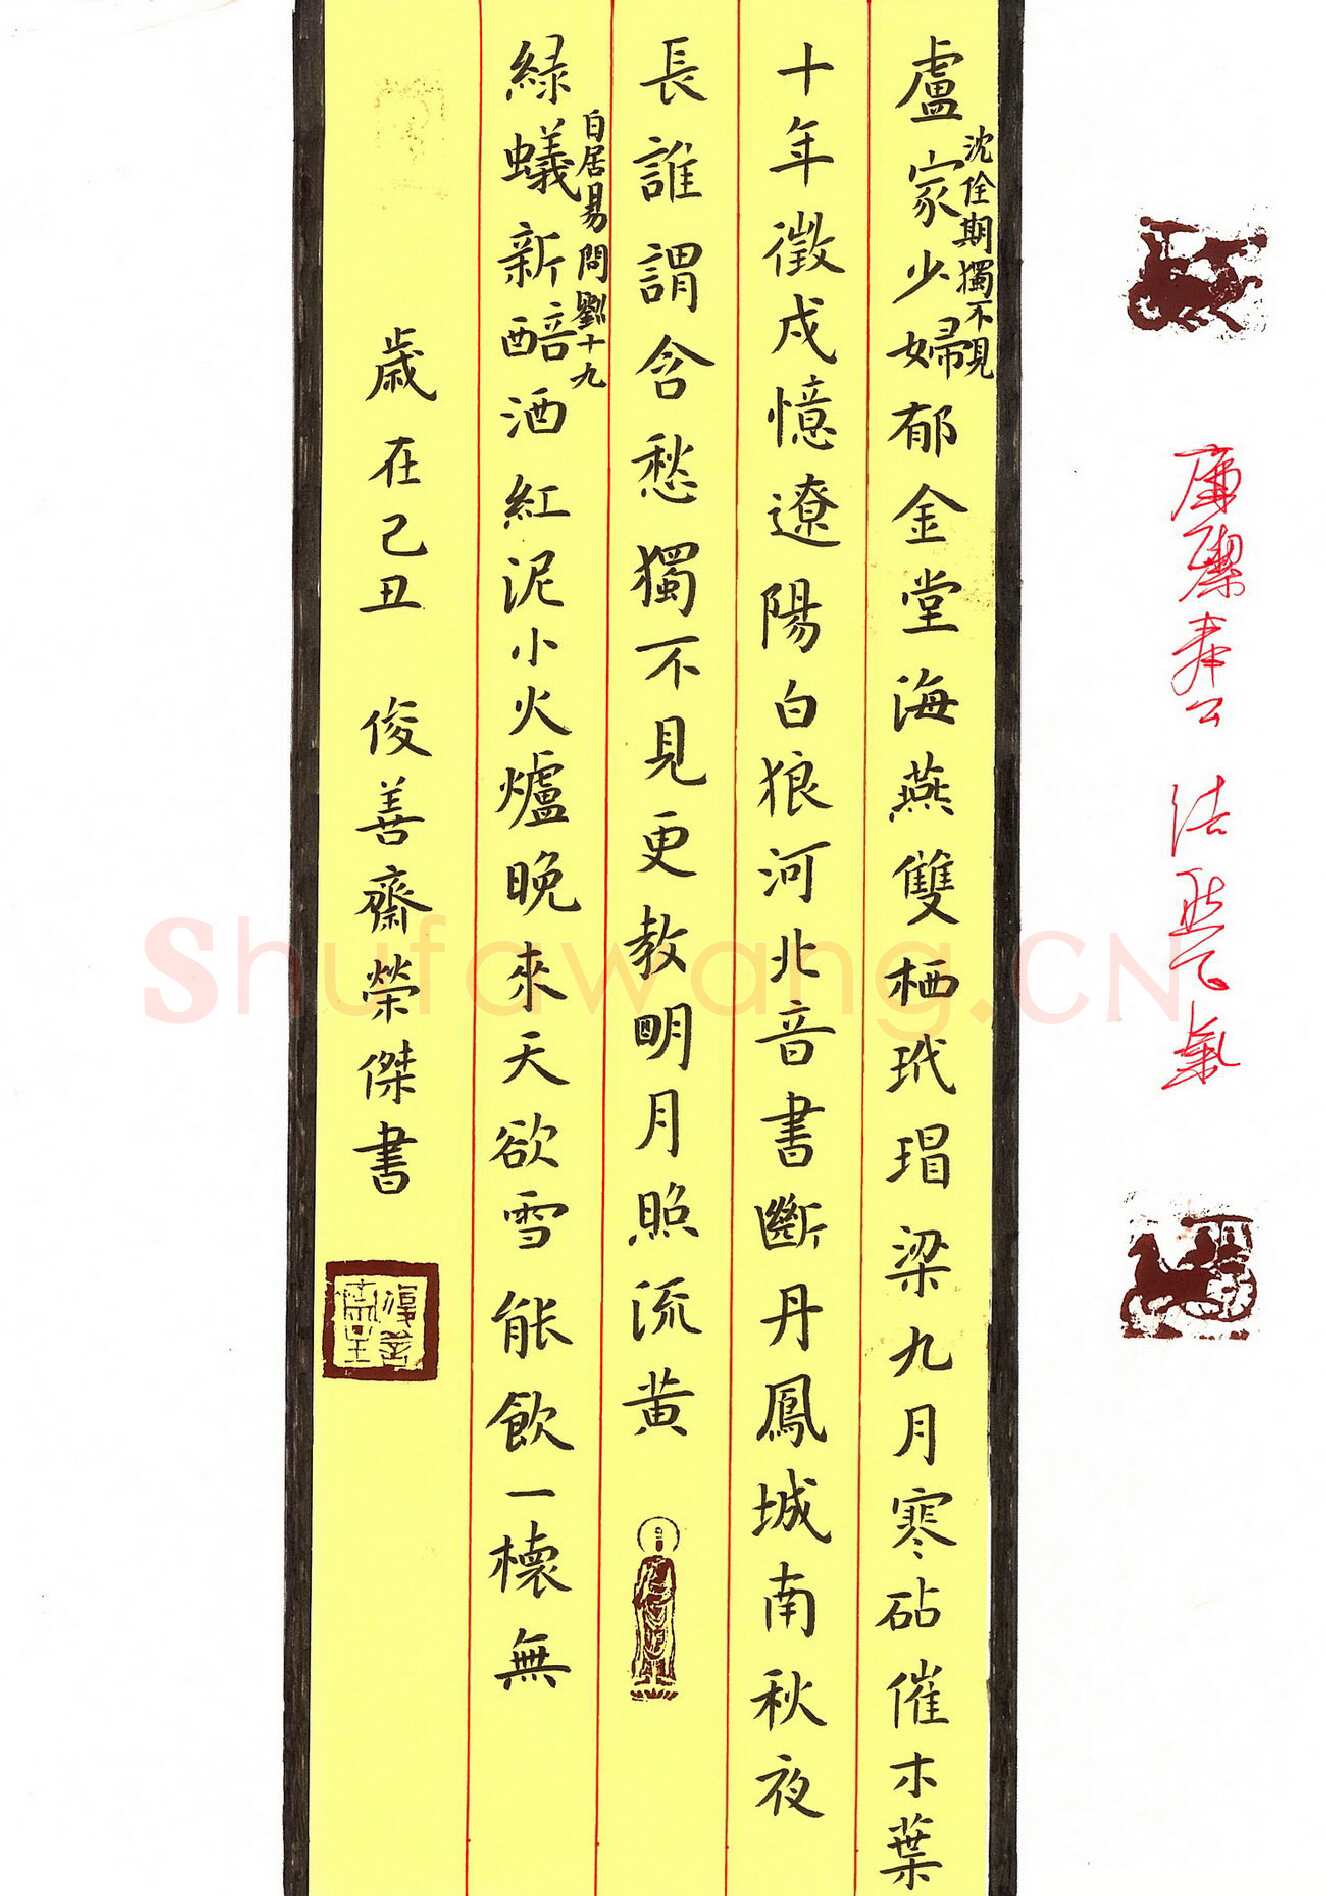 盧家少婦郁金堂海燕雙栖玳瑁梁九月寒砧催木葉
沈佺期獨不見
十年徵戍憶遼陽白狼河北音書斷丹鳳城南秋夜
長誰謂含愁獨不見更教明月照流黄
緑蟻新醅酒紅泥小火爐晚來天欲雪能飲一櫰無
白居易問劉十九
歳在己丑 俊善齋榮傑書
Shufawang.CN